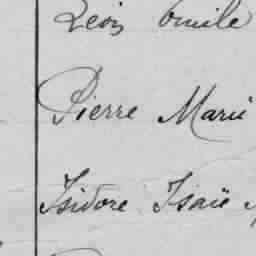 Léon Emile
Pierre Marie
Isidore Isaïe